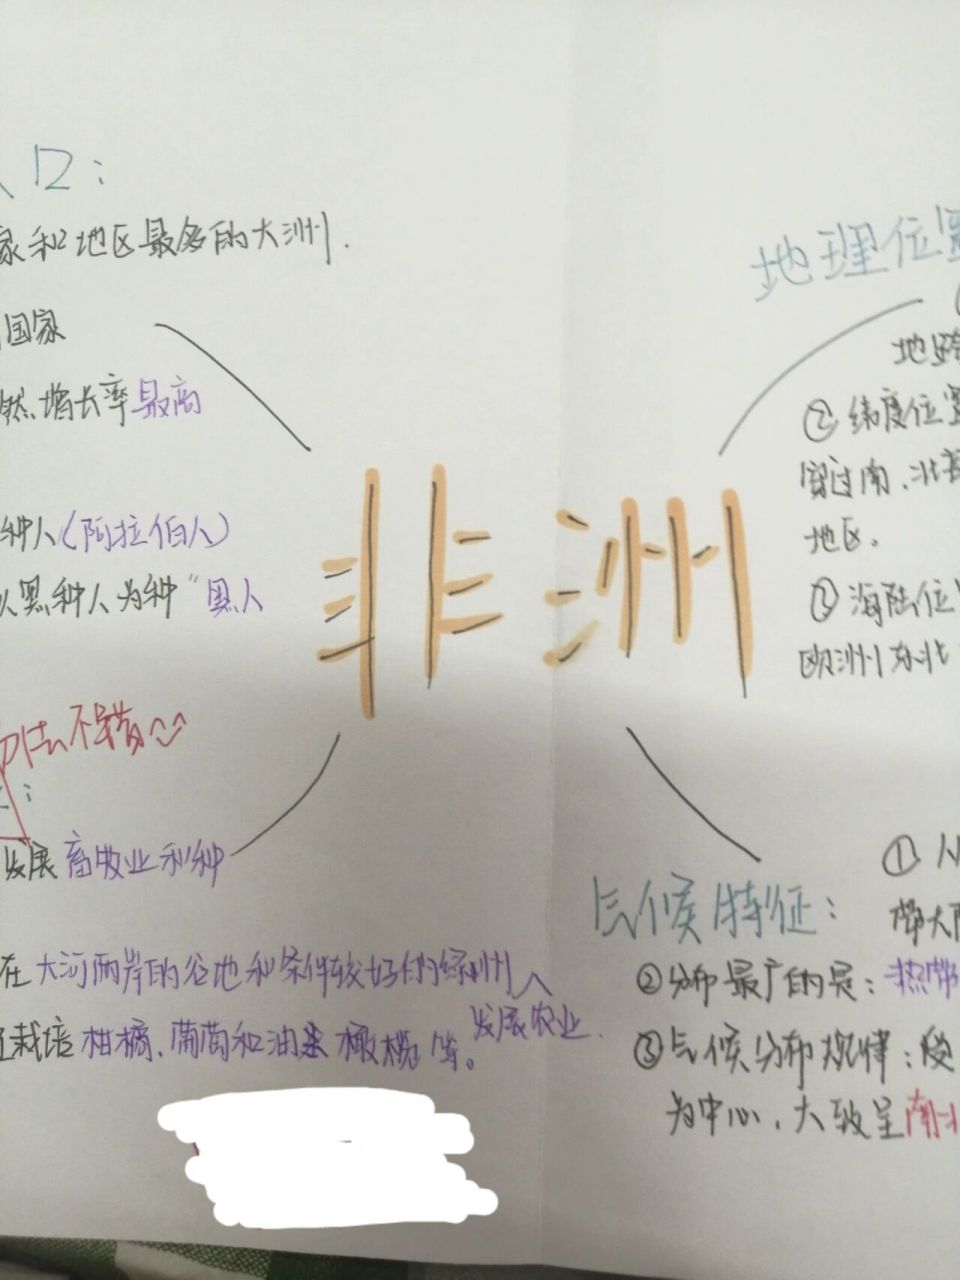 口：
家和地区最多的大洲.
国家
然增长率最高
种人(阿拉伯人)
以黑种人为种“黑人
法不错
：
发展畜牧业和种
在大河两岸的谷地和条件较好的绿洲
发展农业.
栽培柑橘、葡萄和油 橄榄等。
非洲
地理位置
地跨
②纬度位置
穿过南、北
地区。
③海陆位
欧洲东北
气候特征：
①
带大
②分布最广的是：热带
③气候分布规律：
为中心，大致呈南北